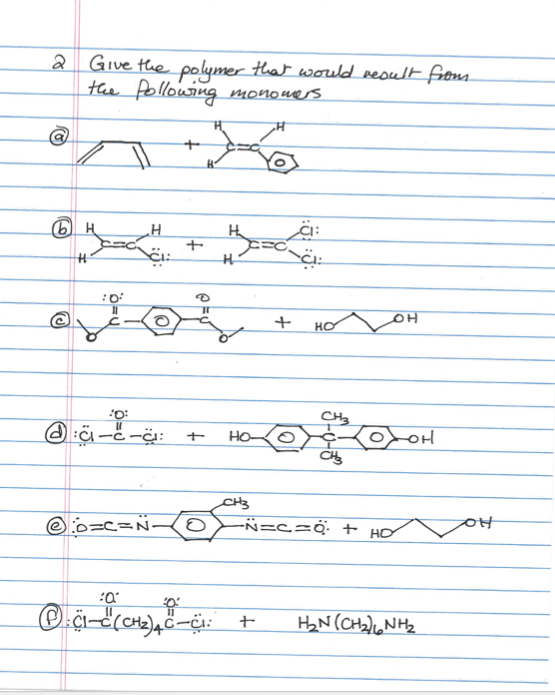 2 Give the polymer that would result from
the following monomers
(a) + H H C=C H
(b) H H C=C H Cl: + H Cl: C=C H Cl:
(c) :O: C O + O C O HO OH
(d) :Cl-C-Cl: :O: + HO- CH3 -C- CH3 -OH
(e) :O=C=N- CH3 -N=C=O: + HO OH
(f) :Cl-C(CH2)4C-Cl: :O: :O: + H2N(CH2)6NH2